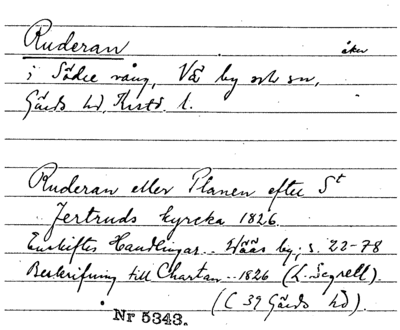 Ruderan åker
i Södre vång, Vä by och sn,
Gärds hd, Kristd. l.
Ruderan eller Planen efter St
Jertruds kyrcka 1826.
Enskiftes Handlingar... Wääs by; s. 22-78
Beskrifning till Chartan... 1826 (L. Segrell).
(C 39 Gärds hd).
Nr 5343.